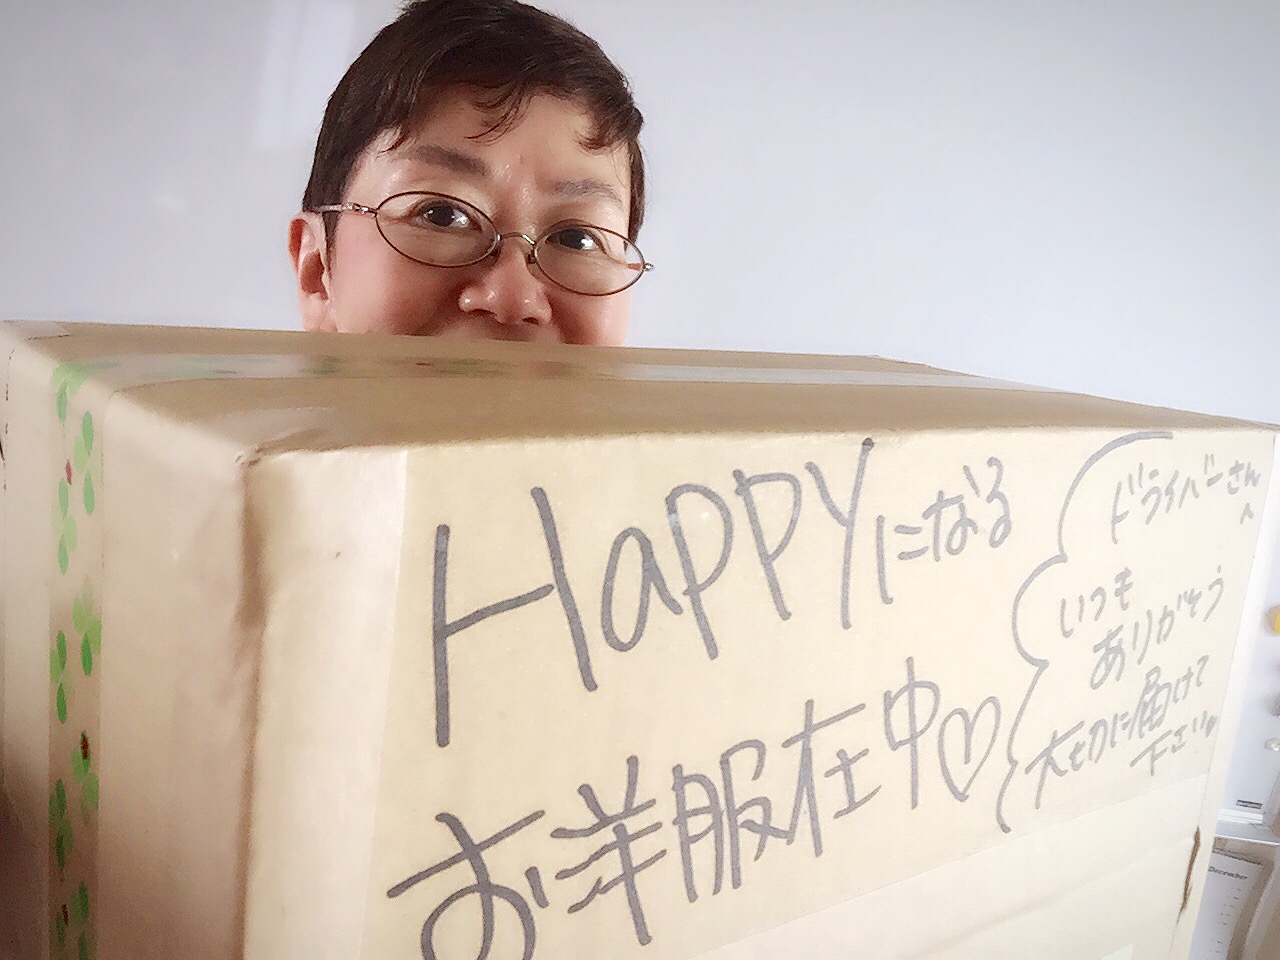 Happyになる
お洋服在中♡
ドライバーさんへ
いつも
ありがとう
大切に届けて
下さい
December